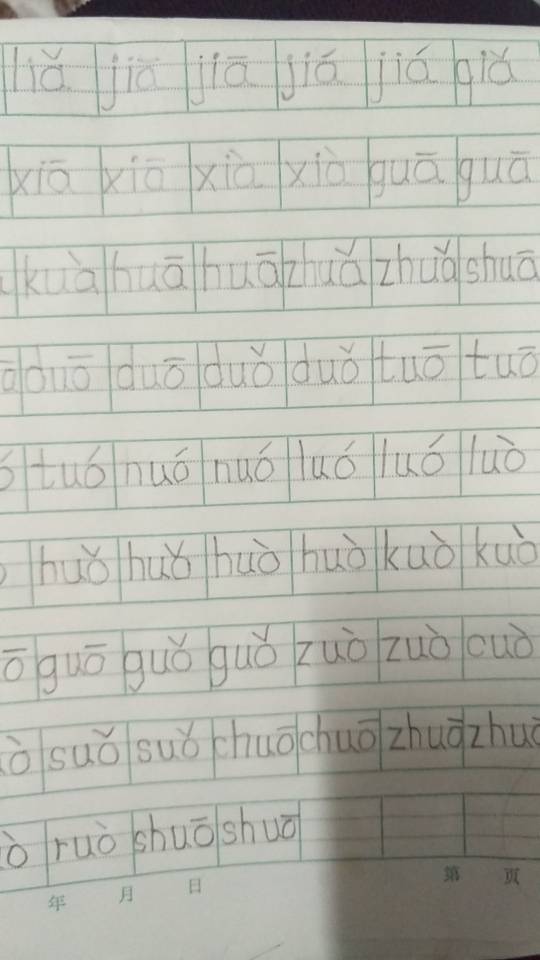 liǎ jiā jiā jiá jiá qiǎ
xiā xiā xià xià guā guā
kuà huā huā zhuǎ zhuǎ shuā
duō duō duǒ duǒ tuō tuō
tuó nuó nuó luó luó luò
huǒ huǒ huò huò kuò kuò
guō guǒ guǒ zuò zuò cuò
suǒ suǒ chuō chuō zhuō zhuō
ruò shuō shuō
年 月 日 第 页